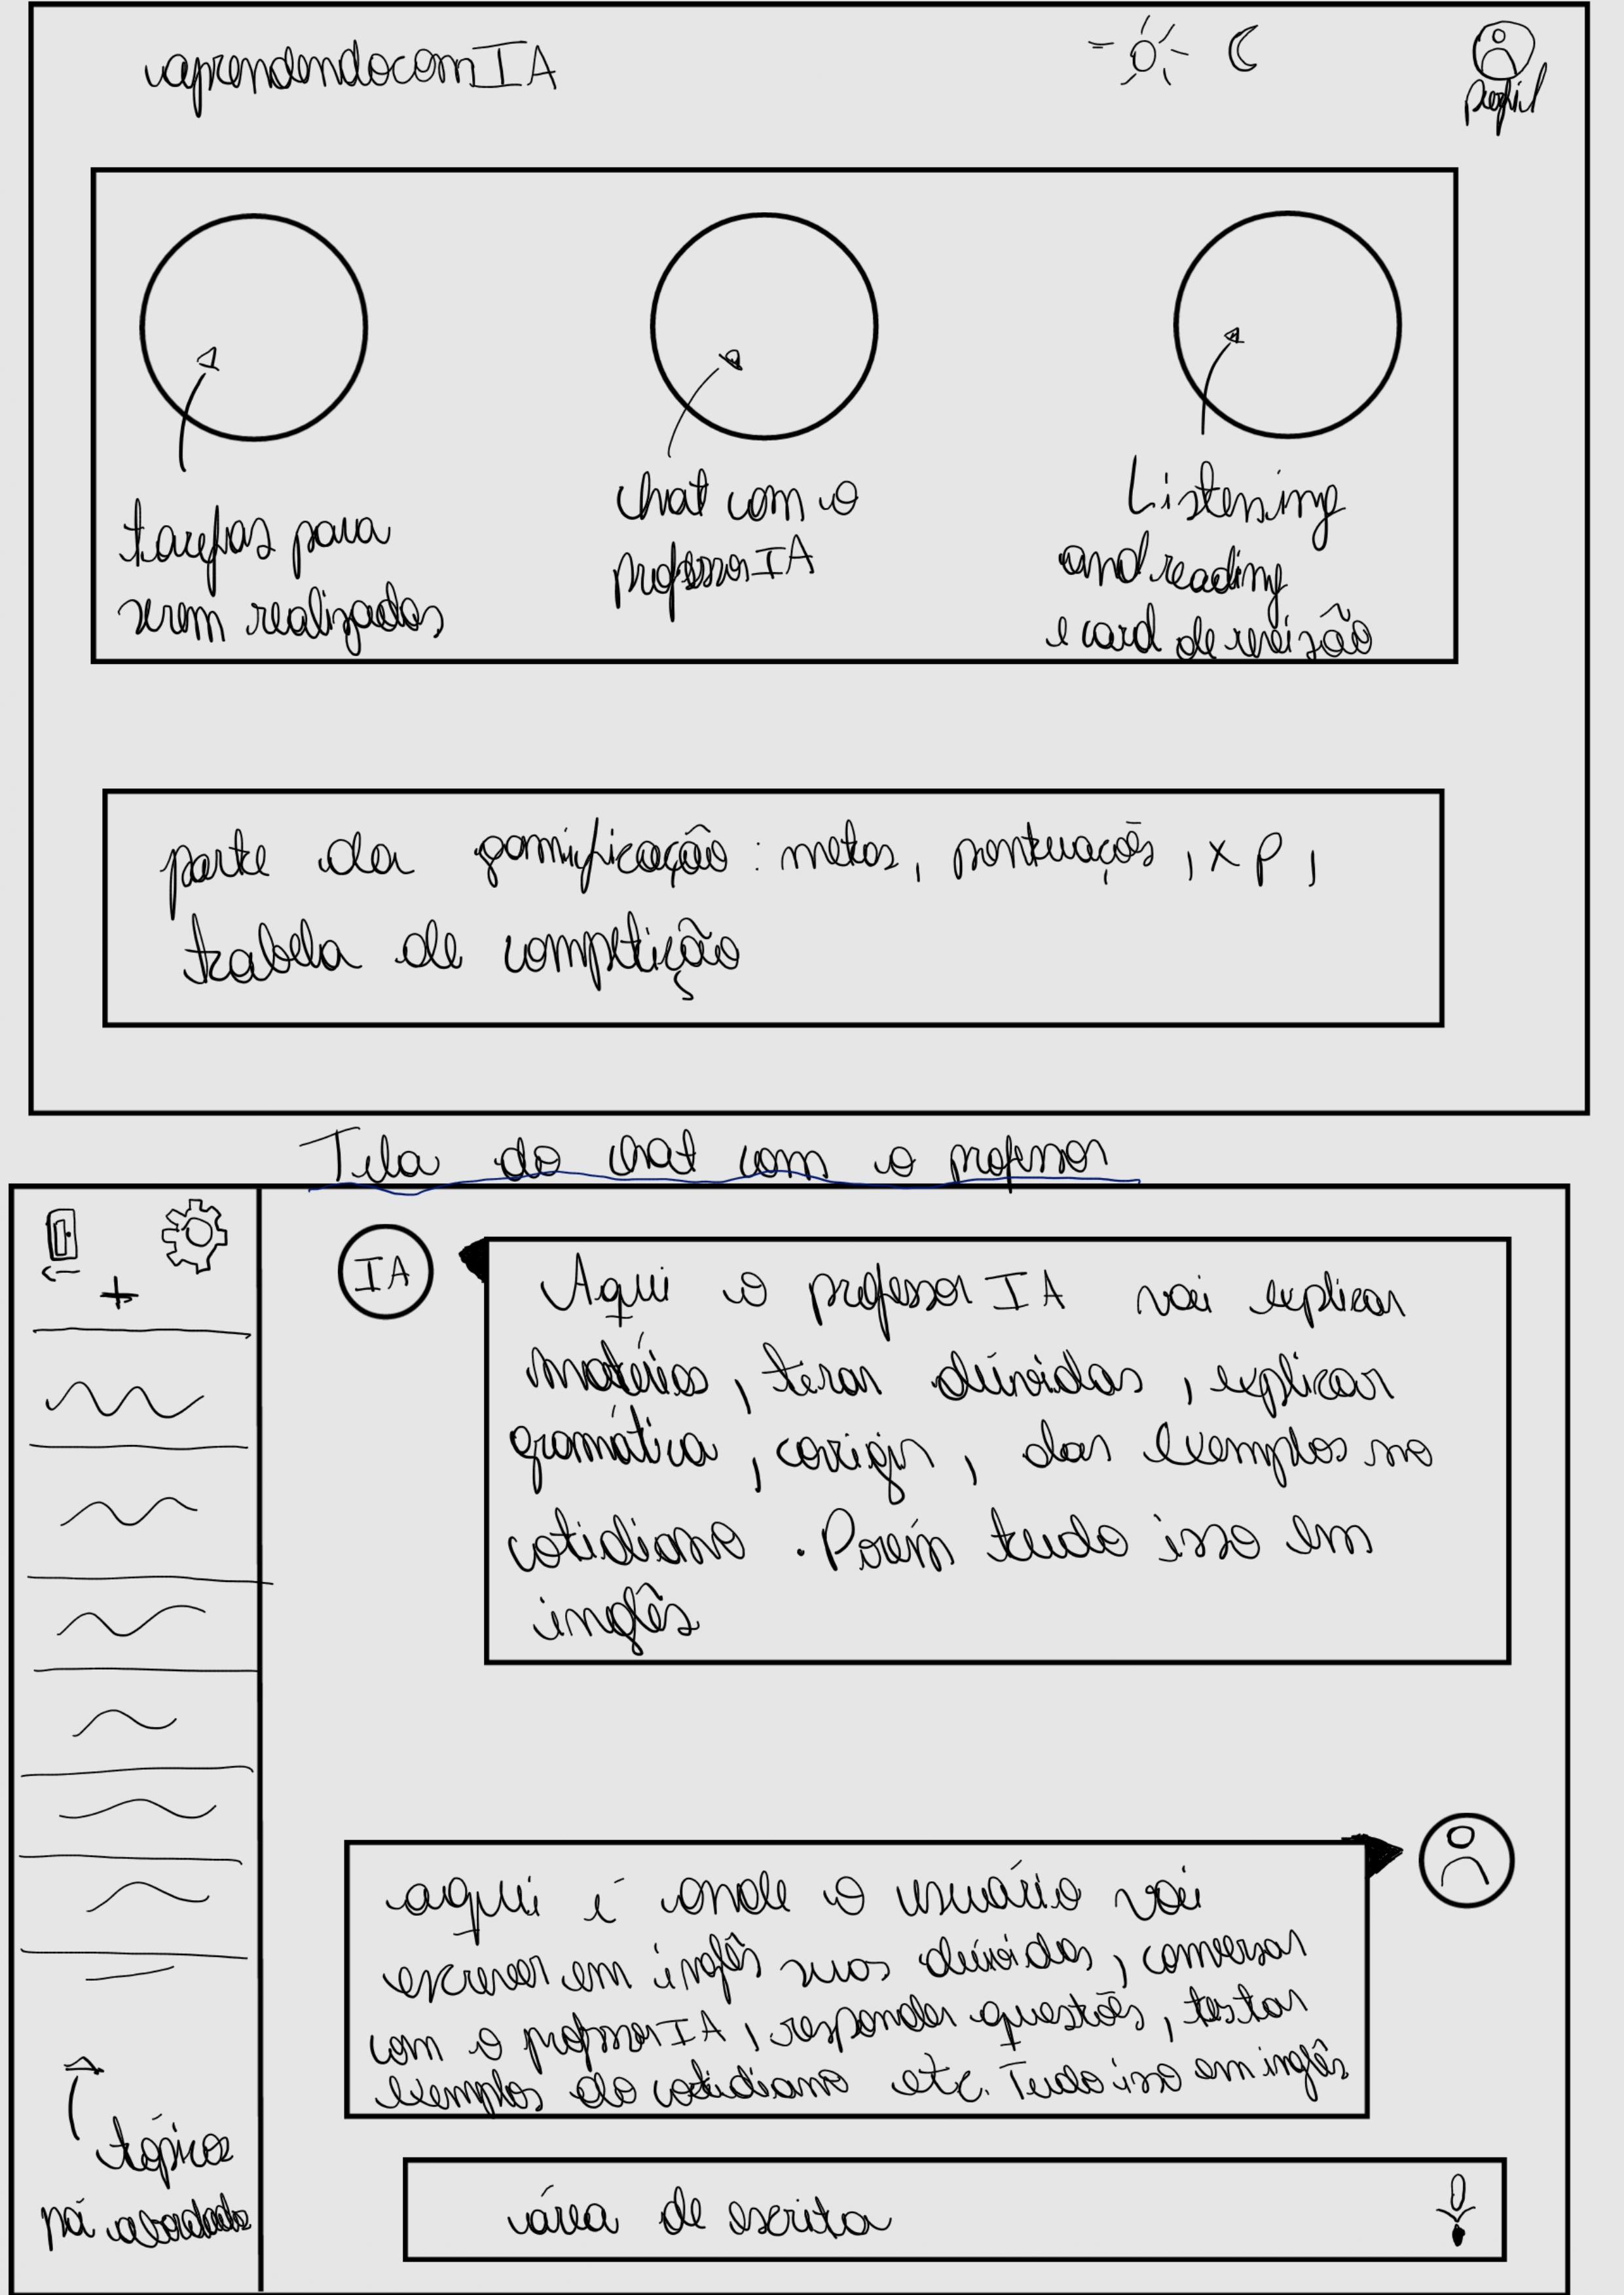 aprendendocomIA
perfil
tarefas para
serem realizadas
chat com o
professor IA
Listening
and reading
e card de revisão
parte da gamificação: metas, pontuações, xp,
tabela de competição
Tela do chat com o professor
IA
Aqui o professor IA vai explicar
matérias, tirar dúvidas, explicar
gramática, corrigir, dar exemplos no
cotidiano. Porém tudo isso em
inglês
aqui é onde o usuário vai
escrever em inglês suas dúvidas, conversar
com o professor IA, responder questões, testar
exemplos do cotidiano etc. Tudo isso em inglês
tópicos
já abordados
área de escrita